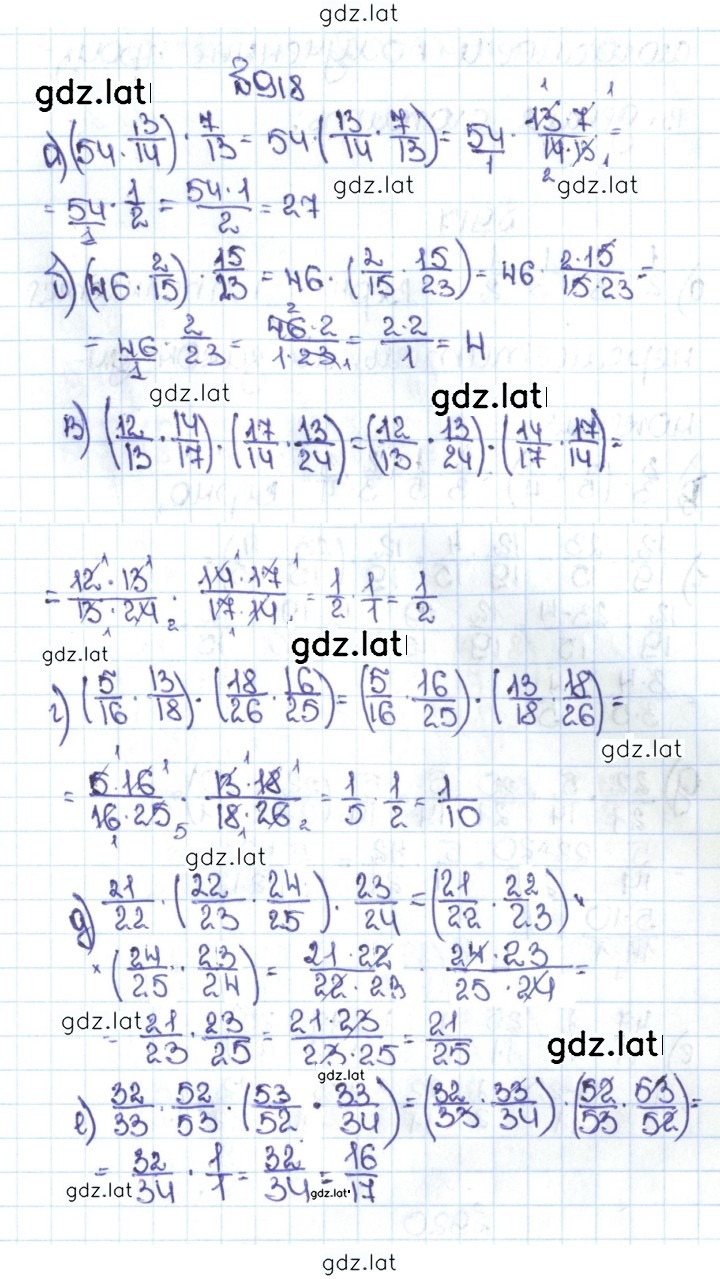 gdz.lat
№918
gdz.lat
а) (54 · 13/14) · 7/13 = 54 · (13/14 · 7/13) = 54/1 · (13 · 7)/(14 · 13) =
gdz.lat gdz.lat
= 54/1 · 1/2 = (54 · 1)/2 = 27
б) (46 · 2/15) · 15/23 = 46 · (2/15 · 15/23) = 46 · (2 · 15)/(15 · 23) =
= 46/1 · 2/23 = (46 · 2)/(1 · 23) = (2 · 2)/1 = 4
gdz.lat gdz.lat
в) (12/13 · 14/17) · (17/14 · 13/24) = (12/13 · 13/24) · (14/17 · 17/14) =
= (12 · 13)/(13 · 24) · (14 · 17)/(17 · 14) = 1/2 · 1/1 = 1/2
gdz.lat gdz.lat
г) (5/16 · 13/18) · (18/26 · 16/25) = (5/16 · 16/25) · (13/18 · 18/26) =
gdz.lat
= (5 · 16)/(16 · 25) · (13 · 18)/(18 · 26) = 1/5 · 1/2 = 1/10
gdz.lat
д) 21/22 · (22/23 · 24/25) · 23/24 = (21/22 · 22/23) ×
× (24/25 · 23/24) = (21 · 22)/(22 · 23) · (24 · 23)/(25 · 24) =
gdz.lat
= 21/23 · 23/25 = (21 · 23)/(23 · 25) = 21/25
gdz.lat
gdz.lat
е) 32/33 · 52/53 · (53/52 · 33/34) = (32/33 · 33/34) · (52/53 · 53/52) =
= 32/34 · 1/1 = 32/34 = 16/17
gdz.lat gdz.lat
gdz.lat